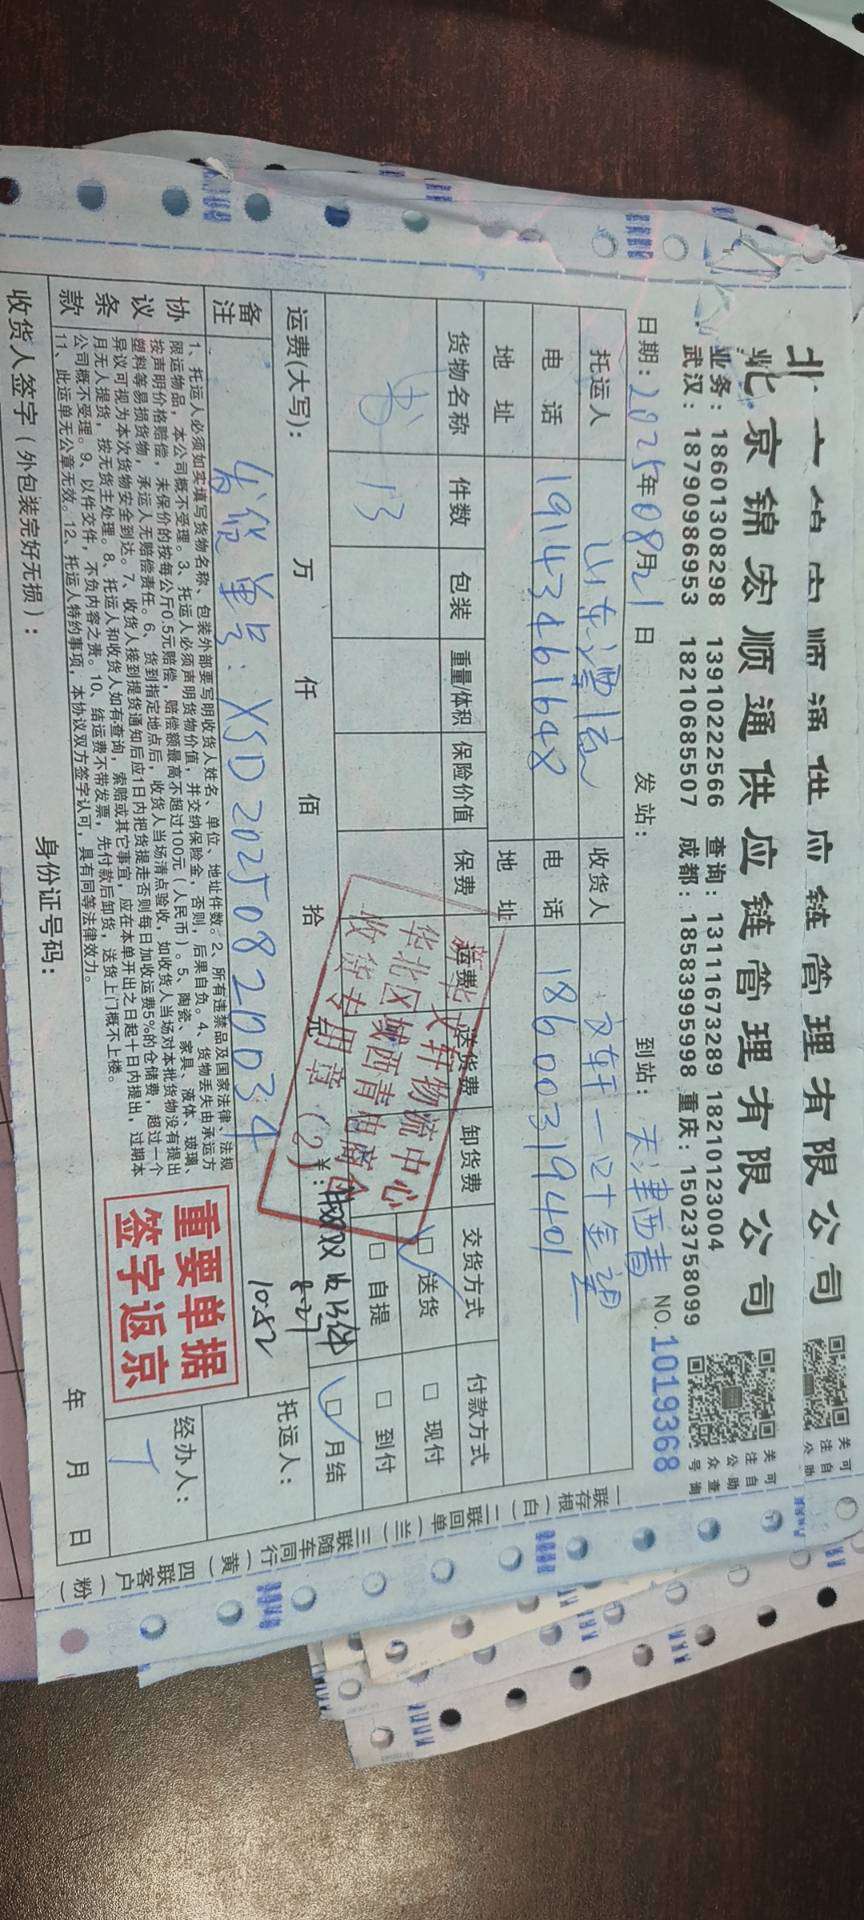 北京锦宏顺通供应链管理有限公司
业务：18601308298 13910222566 查询：13111673289 18210123004
武汉：18790986953 18210685507 成都：18583995998 重庆：15023758099
关注公众号
可自助查询
日期：2025年08月21日 发站： 到站：天津西青 NO.1019368
托运人 山东 收货人 文轩
电话 19143461648 电话 18600319401
地址 地址
货物名称 件数 包装 重量/体积 保险价值 保费 运费 送货费 卸货费 交货方式 付款方式
书 13 □送货 □现付
□自提 □到付
□月结
运费(大写)： 万 仟 佰 拾 元 ￥：
新华文轩物流中心
华北区域西青电商仓
收货专用章（2）
实收13件
8-21
10:52
备注 发货单号：XSD20250820034
托运人：
经办人：
协议条款
1、托运人必须如实填写货物名称、包装外部要写明收货人姓名、单位、地址件数。2、所有违禁品及国家法律、法规
限运物品，本公司概不受理。3、托运人必须声明货物价值，并交纳保险金，否则，后果自负。4、货物丢失由承运方
按声明价格赔偿，未保价的按每公斤0.5元赔偿，赔偿额最高不超过100元（人民币）。5、陶瓷、家具、液体、玻璃、
塑料等易损货物，承运人无赔偿责任。6、货到指定地点后，收货人当场清点验收，如收货人当场对本批货物没有提出
异议可视为本次货物安全到达。7、收货人接到提货通知后应1日内把货提走否则每日加收运费5%的仓储费，超过一个
月无人提货，按无货主处理。8、托运人和收货人如有查询，索赔或其它事宜，应在本单开出之日起十日内提出，过期本
公司概不受理。9、以件交件，不负内容之责。10、结运费不带发票，先付款后卸货，送货上门概不上楼。
11、此运单无公章无效。12、托运人特约事项，本协议双方签字认可，具有同等法律效力。
重要单据
签字返京
收货人签字（外包装完好无损）： 身份证号码： 年 月 日
一联存根（白）二联回单（兰）三联随车同行（黄）四联客户（粉）